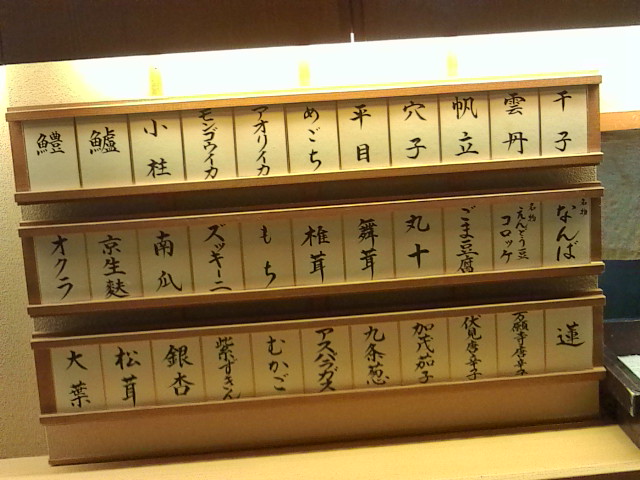 干子
雲丹
帆立
穴子
平目
めごち
アオリイカ
モンゴウイカ
小柱
鱸
鱧
名物 なんば
名物 えんどう豆コロッケ
ごま豆腐
丸十
舞茸
椎茸
もち
ズッキーニ
南瓜
京生麩
オクラ
蓮
万願寺唐辛子
伏見唐辛子
加茂茄子
九条葱
アスパラガス
むかご
紫ずきん
銀杏
松茸
大葉